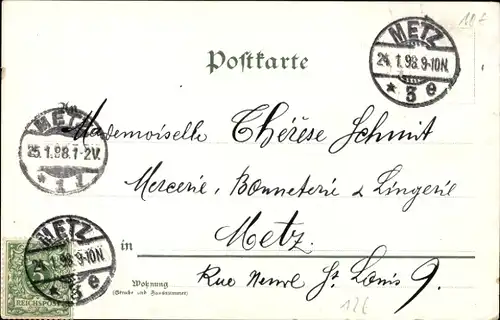 10.-
METZ
24.1.98.9-10N.
* 3 e
Postkarte
An
METZ
25.1.98.7-2V.
* 1 1
Mademoiselle Thérèse Schmit
Mercerie, Bonneterie & Lingerie
in Metz.
METZ
24.1.98.9-10N
* 3 e
REICHSPOST
Wohnung
(Straße und Hausnummer)
Rue Neuve St. Louis 9.